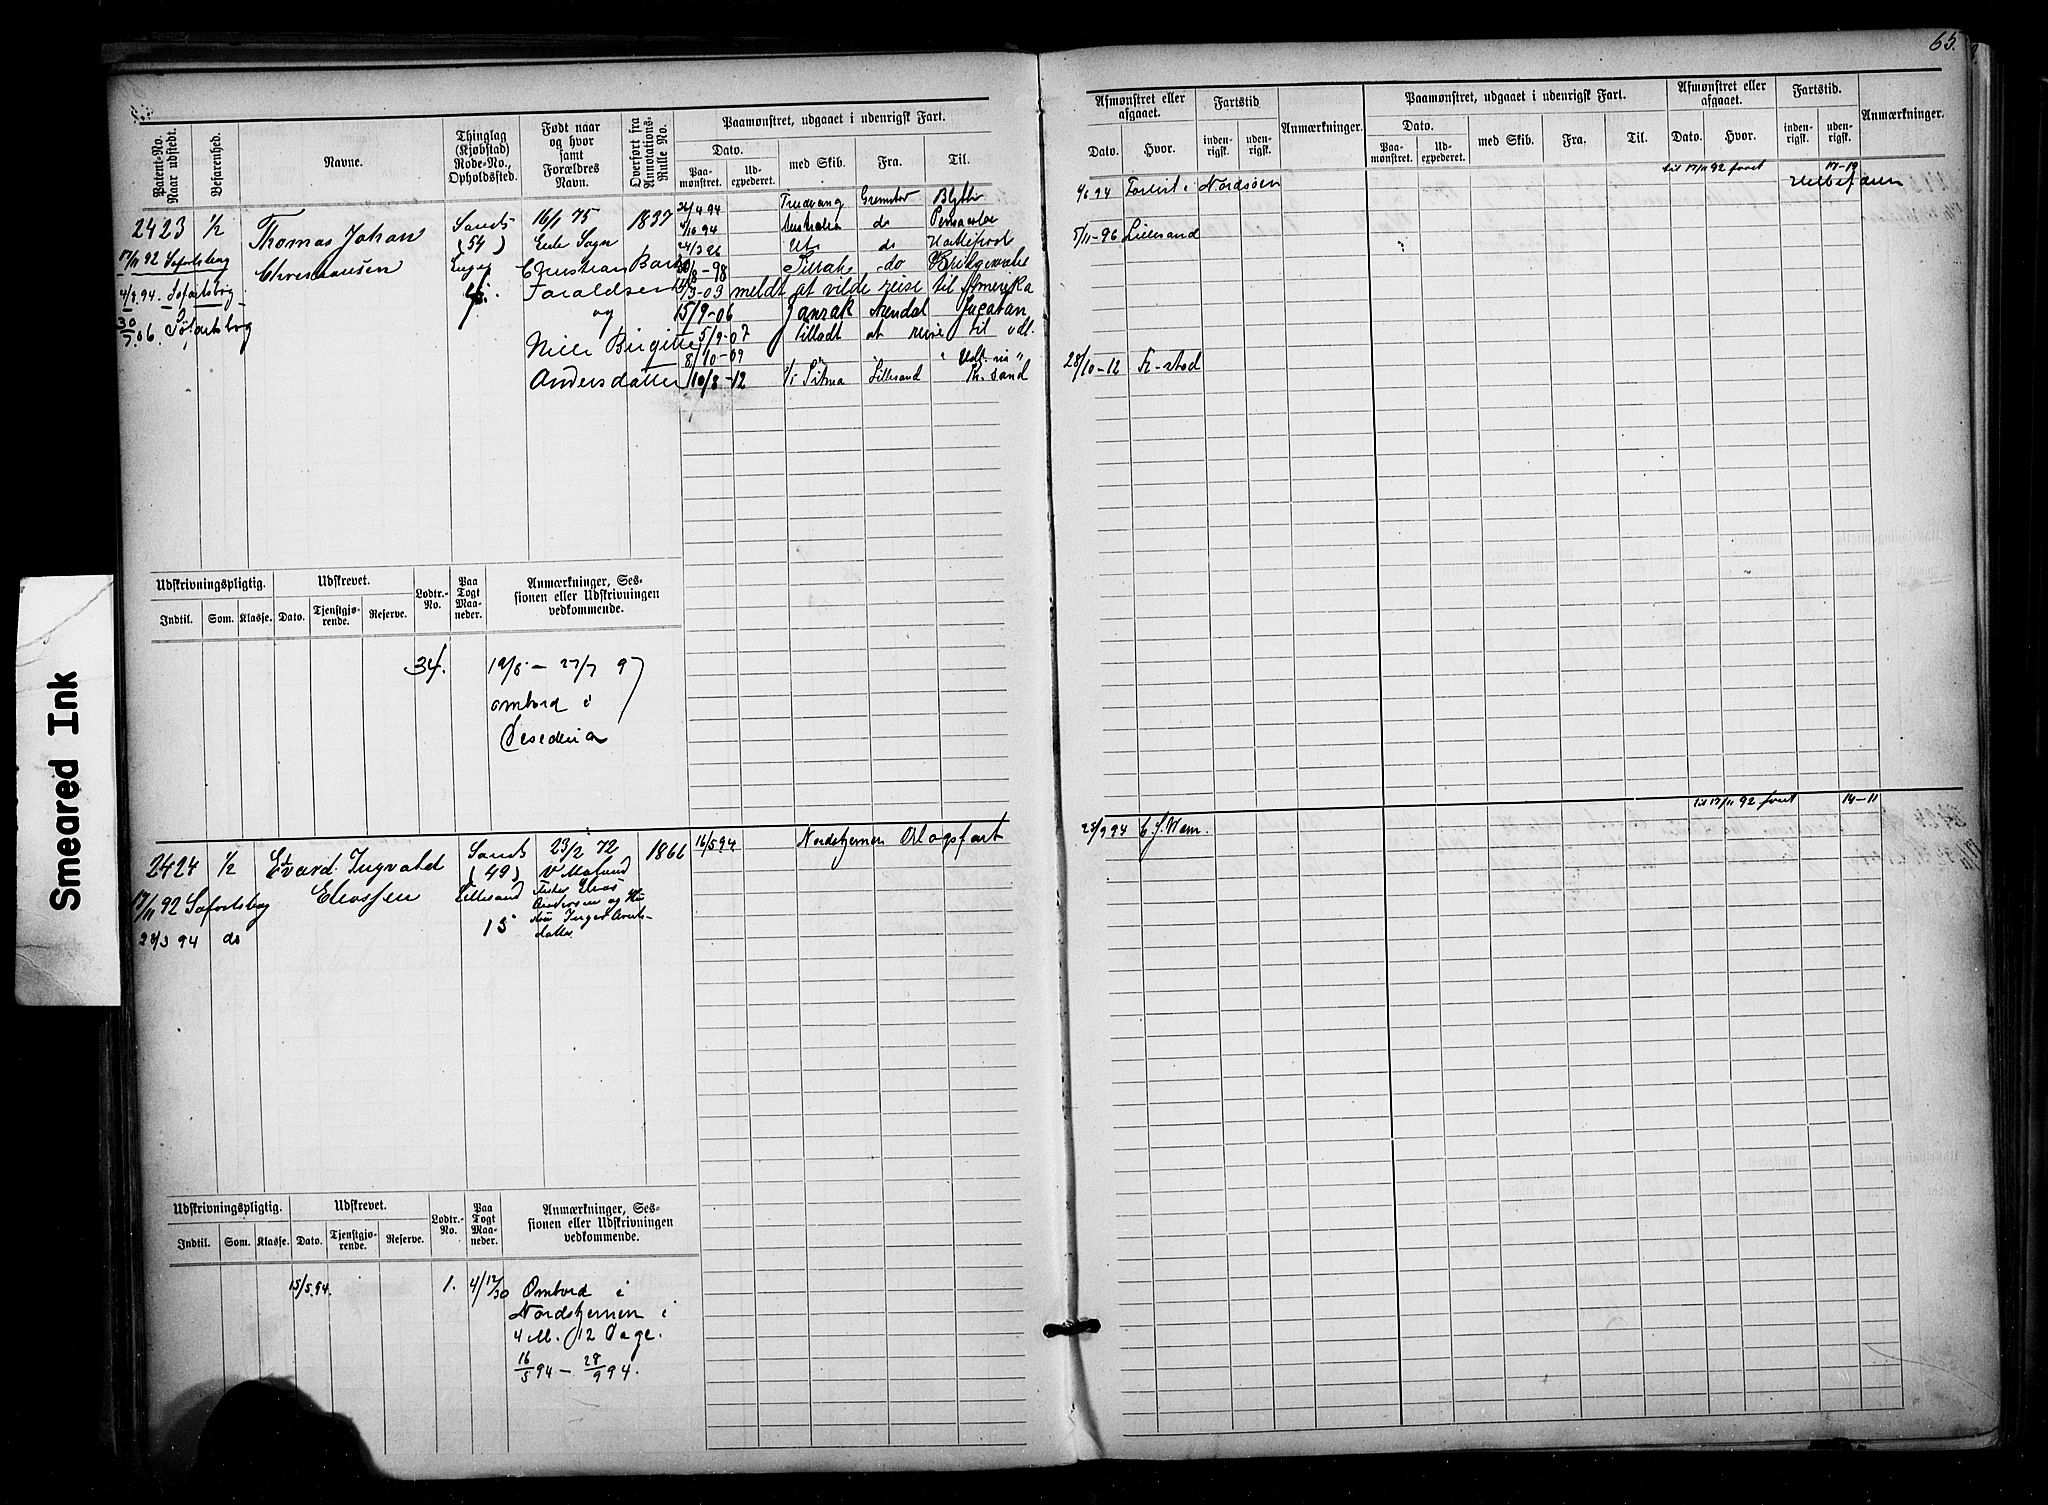 65.
Patent-No. Naar udstedt.
Befarenhed.
Navne.
Thinglag (Kjøbstad) Rode-No., Opholdssted.
Født naar og hvor samt Forældres Navn.
Overført fra Annotations-Rulle No.
Paamønstret, udgaaet i udenrigsk Fart.
Dato.
Paamønstret.
Udexpederet.
med Skib.
Fra.
Til.
Afmønstret eller afgaaet.
Dato.
Hvor.
Fartstid
indenrigsk.
udenrigsk.
Anmærkninger.
Paamønstret, udgaaet i udenrigsk Fart.
Dato.
Paamønstret.
Udexpederet.
med Skib.
Fra.
Til.
Afmønstret eller afgaaet.
Dato.
Hvor.
Fartstid.
indenrigsk.
udenrigsk.
Anmærkninger.
2423
17/11 92 Søfartsbog
4/9 94. Søfartsbog
30/7 06. Søfartsbog
1/2
Thomas Johan
Sands
(54)
16/1 75
Christian
Faraldsen
og
Birgitte
Andersdatter
1837
26/4 94
Grimstad
Blyth
4/10 94
Australia
do
Pensacola
24/3 96
do
8-98
do
Bridgewater
3-03 meldt at vilde reise til Amerika
15/9-06
Arendal
5/9-07 tilladt at reise til udl.
8/10-09
10/8-12
Lillesand
9/6 94 Forlist i Nordsøen
5/11-96 Lillesand
28/10-12 Fr-stad
til 17/11 92 faret
17-19
Udskrivningspligtig.
Indtil.
Som.
Klasse.
Udskrevet.
Dato.
Tjenstgjørende.
Reserve.
Lodtr.-No.
Paa Togt Maaneder.
Anmærkninger, Sessionen eller Udskrivningen vedkommende.
34.
19/5 – 27/7 97
ombord i
Desederia
2424
17/11 92 Søfartsbog
do
1/2
Edvard Ingvald
Eliassen
Sands
(49)
Lillesand
15
23/2 72
V Moland
Elias
Andersen og
Inger
1866
16/5 94
Nordstjernen Orlogsfart
C. J. Wern.
til 17/11 92 faret
14-11
Udskrivningspligtig.
Indtil.
Som.
Klasse.
Udskrevet.
Dato.
Tjenstgjørende.
Reserve.
Lodtr.-No.
Paa Togt Maaneder.
Anmærkninger, Sessionen eller Udskrivningen vedkommende.
15/5 94.
1.
4/12/30
Ombord i
Nordstjernen i
4 M. 12 Dage.
16/5 94 – 28/9 94.
Smeared Ink